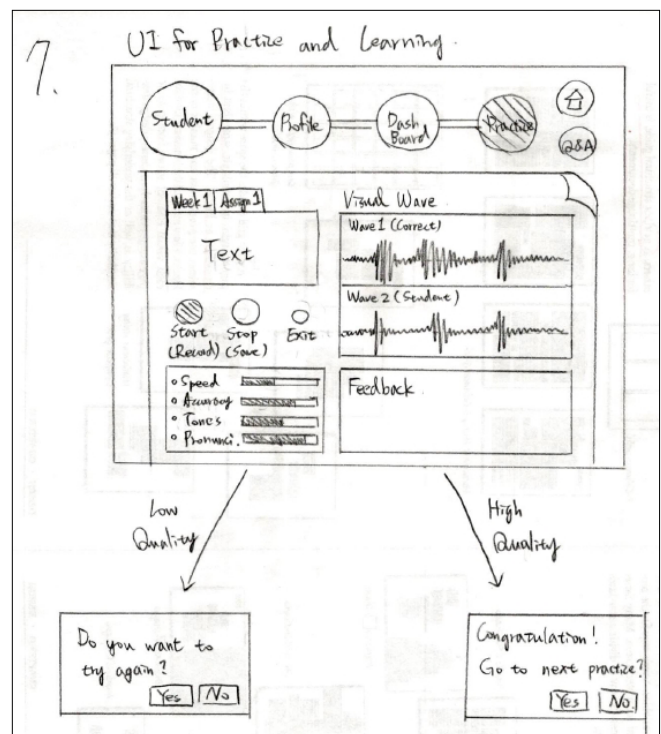 7.
UI for Practice and Learning.
Student
Profile
Dash
Board
Practize
Q&A
Week 1
Assign 1
Text
Start
(Record)
Stop
(Save)
Exit
Speed
Accuracy
Tones
Pronunci.
Visual Wave
Wave 1 (Correct)
Wave 2 (Student)
Feedback
Low
Quality
High
Quality
Do you want to
try again?
Yes
No
Congratulation!
Go to next practize?
Yes
No